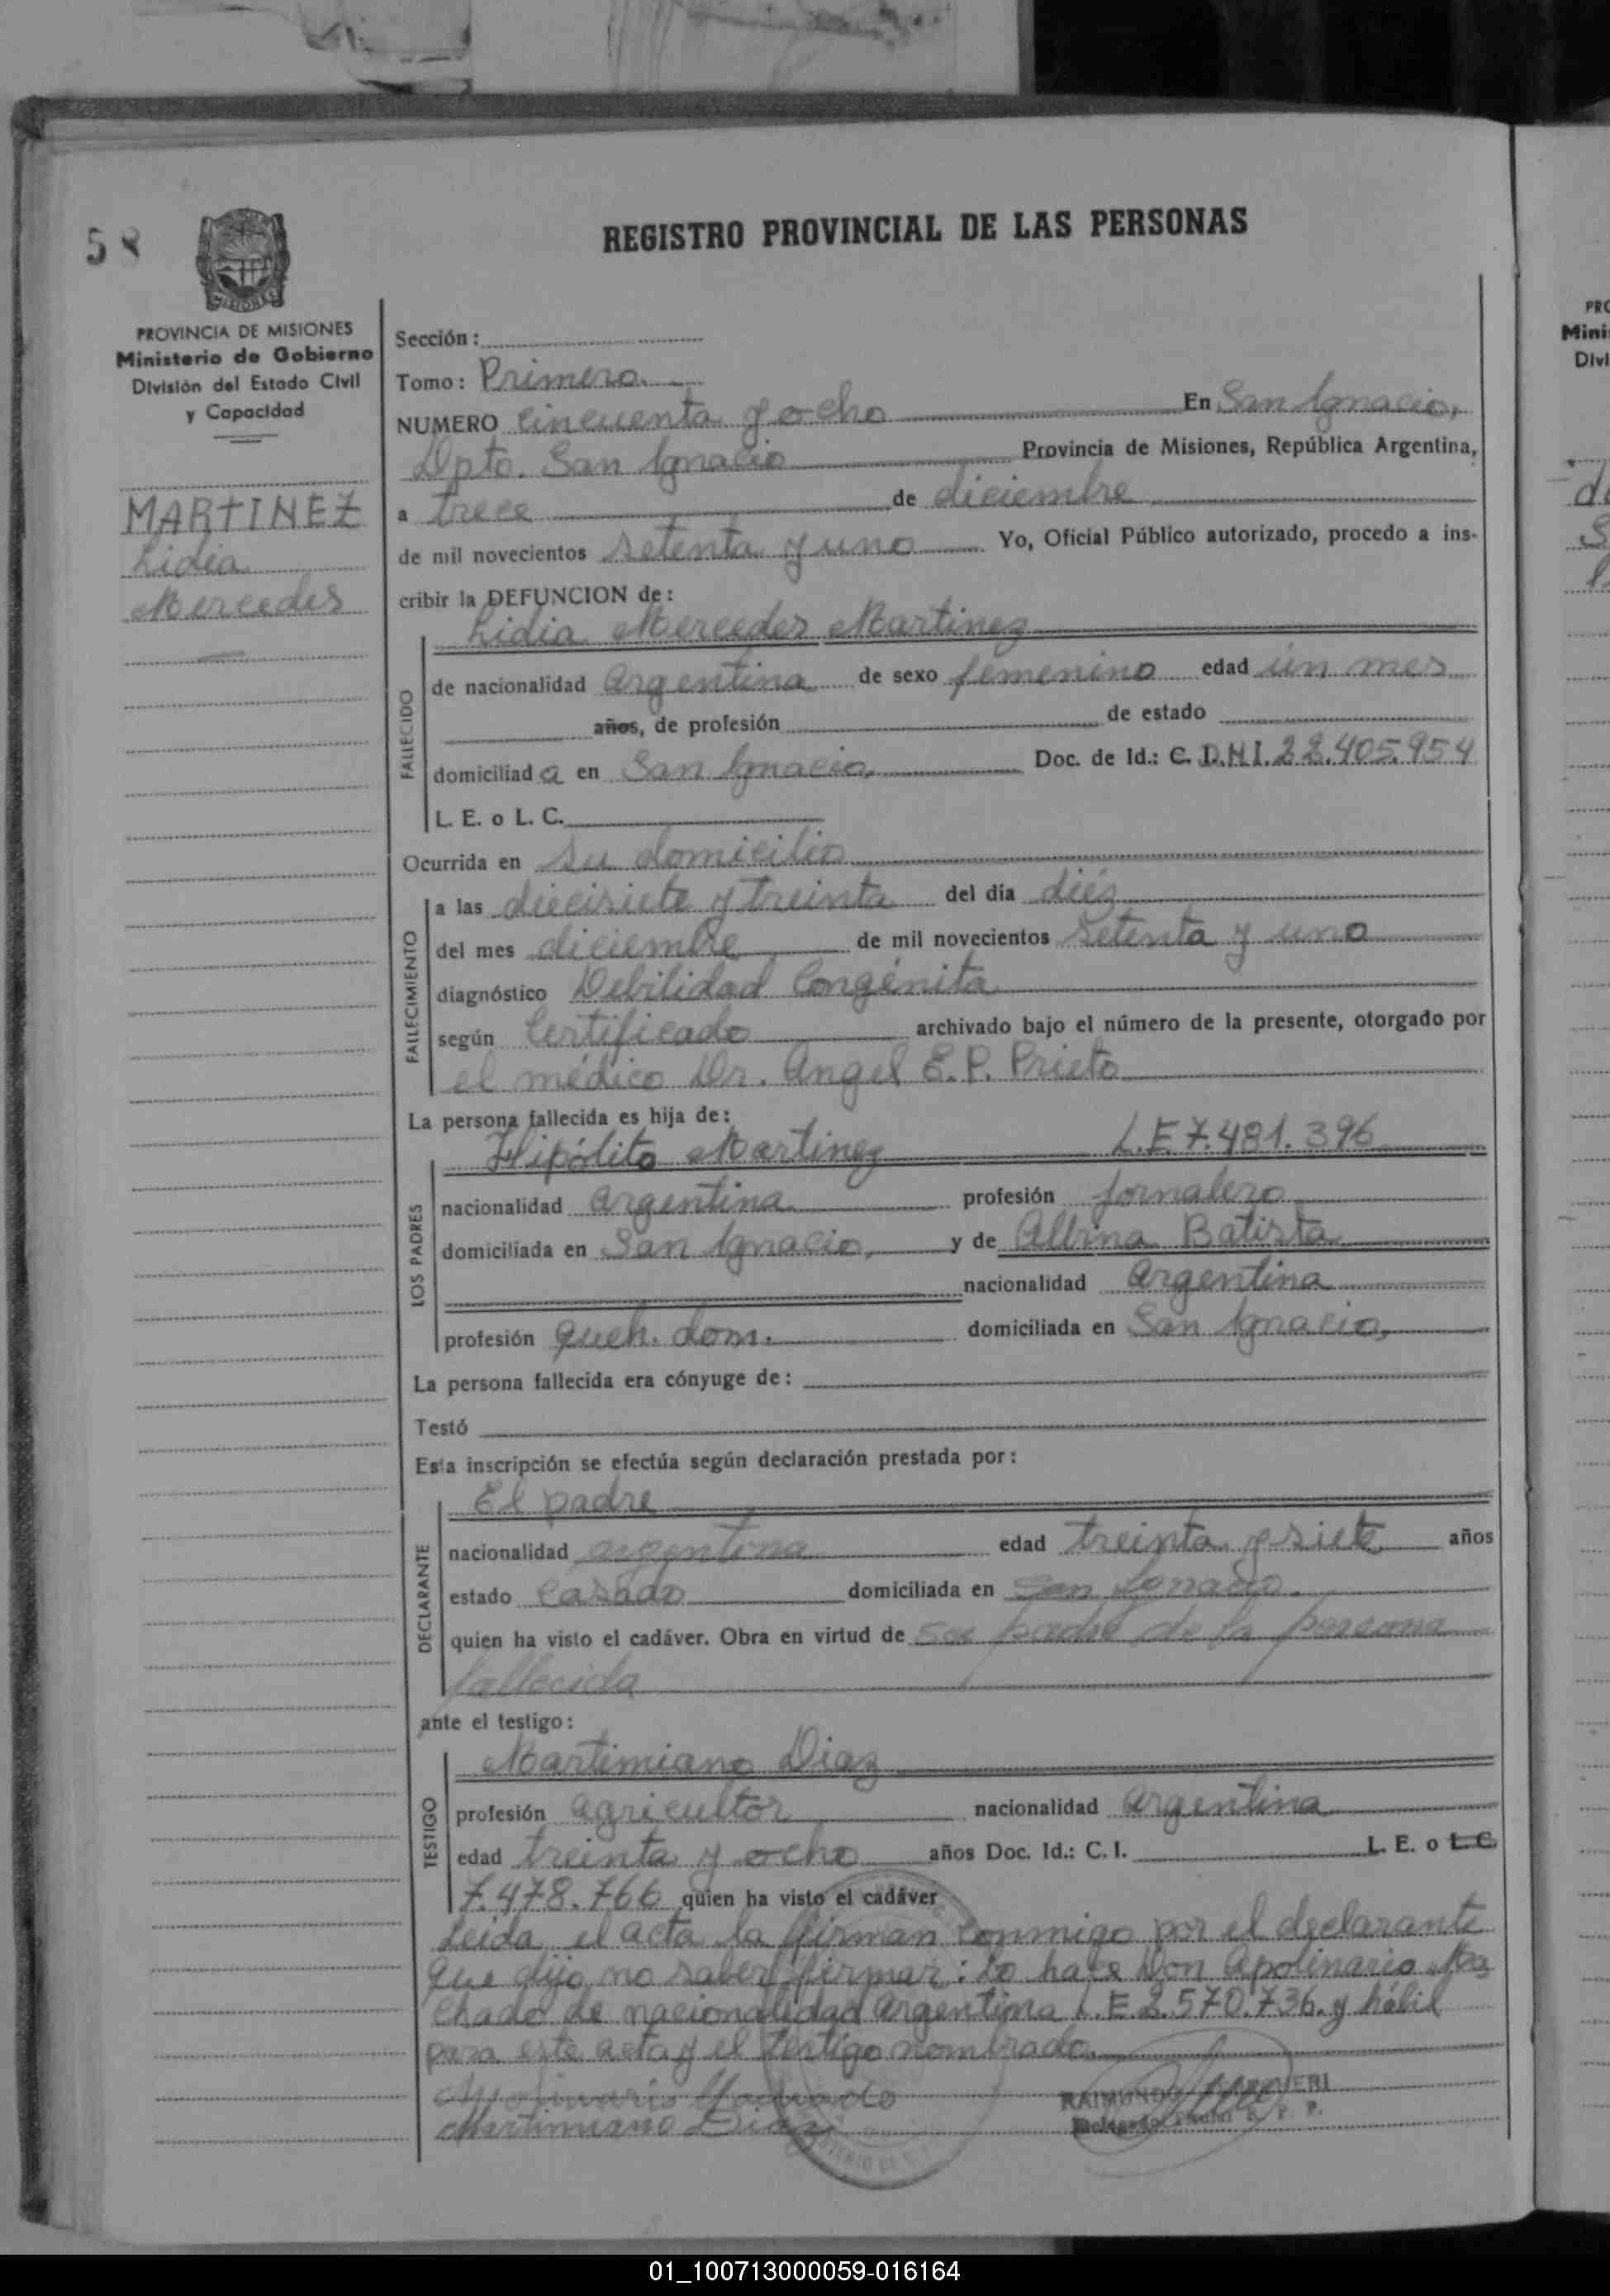 58
MISIONES
PROVINCIA DE MISIONES
Ministerio de Gobierno
División del Estado Civil
y Capacidad
MARTINEZ
Lidia
Mercedes
REGISTRO PROVINCIAL DE LAS PERSONAS
Sección:
Tomo: Primero.
NUMERO cincuenta y ocho En San Ignacio,
Dpto. San Ignacio Provincia de Misiones, República Argentina,
a trece de diciembre
de mil novecientos setenta y uno Yo, Oficial Público autorizado, procedo a ins-
cribir la DEFUNCION de:
Lidia Mercedes Martinez
FALLECIDO
de nacionalidad argentina de sexo femenino edad un mes
años, de profesión de estado
domiciliad a en San Ignacio, Doc. de Id.: C. D.N.I. 22.405.954
L. E. o L. C.
Ocurrida en su domicilio
FALLECIMIENTO
a las diecisiete y treinta del día diéz
del mes diciembre de mil novecientos setenta y uno
diagnóstico Debilidad Congénita
según Certificado archivado bajo el número de la presente, otorgado por
el médico Dr. Angel E. P. Prieto
La persona fallecida es hija de:
Hipólito Martinez L.E 7.481.396
LOS PADRES
nacionalidad argentina profesión jornalero
domiciliada en San Ignacio, y de Albina Batista
nacionalidad argentina
profesión queh. dom. domiciliada en San Ignacio,
La persona fallecida era cónyuge de:
Testó
Esta inscripción se efectúa según declaración prestada por:
El padre
DECLARANTE
nacionalidad argentina edad treinta y siete años
estado casado domiciliada en San Ignacio
quien ha visto el cadáver. Obra en virtud de ser padre de la persona
fallecida
ante el testigo:
Martimiano Diaz
TESTIGO
profesión agricultor nacionalidad argentina
edad treinta y ocho años Doc. Id.: C. I. L. E. o L. C.
7.478.766 quien ha visto el cadáver
Leida el acta la firman conmigo por el declarante
que dijo no saber firmar: lo hace Don Apolinario Ma
chado de nacionalidad argentina L.E. 2.570.736. y hábil
para este acta y el testigo nombrado.
Apolinario Machado
Martimiano Diaz
RAIMUNDO
01_100713000059-016164